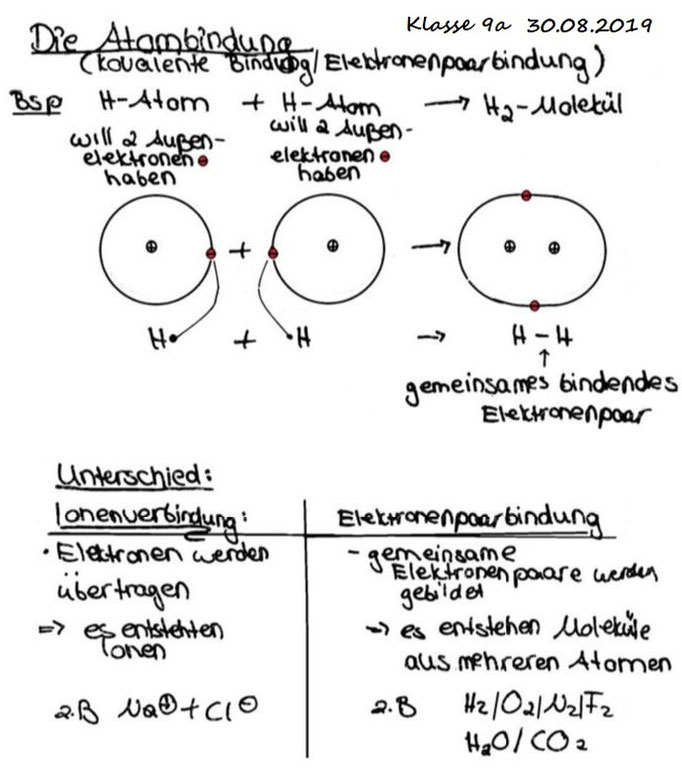 Klasse 9a 30.08.2019
Die Atombindung
(kovalente Bindung/Elektronenpaarbindung)
Bsp H-Atom + H-Atom → H₂-Molekül
will 2 Außen-
elektronen
haben
will 2 Außen-
elektronen
haben
+ →
H• + •H → H-H
↑
gemeinsames bindendes
Elektronenpaar
Unterschied:
Ionenverbindung:
• Elektronen werden
übertragen
=> es entstehten
Ionen
z.B Na⊕ + Cl⊖
Elektronenpaarbindung
- gemeinsame
Elektronenpaare werden
gebildet
→ es entstehen Moleküle
aus mehreren Atomen
z.B H₂/O₂/N₂/F₂
H₂O/CO₂